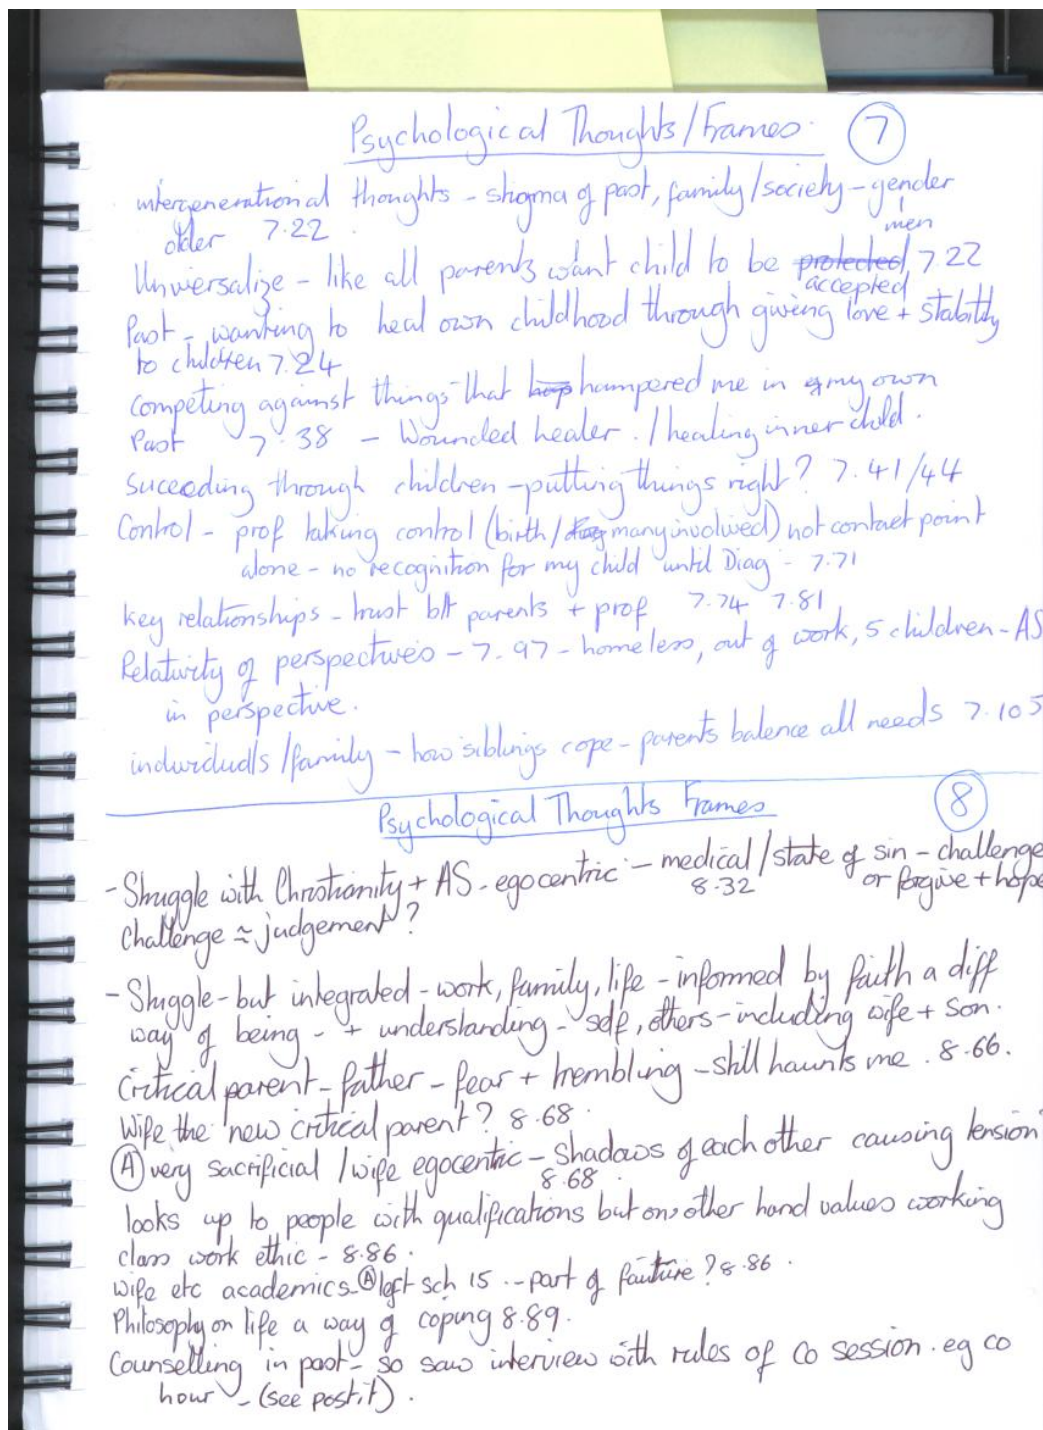 Psychological Thoughts/Frames. 7
intergenerational thoughts - stigma of past, family/society - gender
men
older 7.22.
Universalize - like all parents want child to be protected, 7.22
accepted
Past - wanting to heal own childhood through giving love + stability
to children 7.24
competing against things that hampered me in my own
Past 7.38 - Wounded healer. / healing inner child.
Suceeding through children - putting things right? 7.41/44
Control - prof taking control (birth/ many involved) not contact point
alone - no recognition for my child until Diag - 7.71
key relationships - trust b/t parents + prof 7.74 7.81
Relativity of perspectives - 7.97 - homeless, out of work, 5 children - AS
in perspective.
individuals /family - how siblings cope - parents balence all needs 7.105
Psychological Thoughts Frames 8
- Struggle with Christianity + AS - egocentric - medical / state of sin - challenge
8.32 or forgive + hope
challenge ≈ judgement?
- Struggle - but integrated - work, family, life - informed by faith a diff
way of being - + understanding - self, others - including wife + son.
Critical parent - father - fear + trembling - still haunts me. 8.66.
Wife the new critical parent? 8.68.
(A) very sacrificial / wife egocentric - Shadows of each other causing tension
8.68.
looks up to people with qualifications but on other hand values working
class work ethic - 8.86.
wife etc academics - (A) left sch 15 - part of ? 8.86.
Philosophy on life a way of coping 8.89.
Counselling in past - so saw interview with rules of Co session. eg co
hour - (see post it).